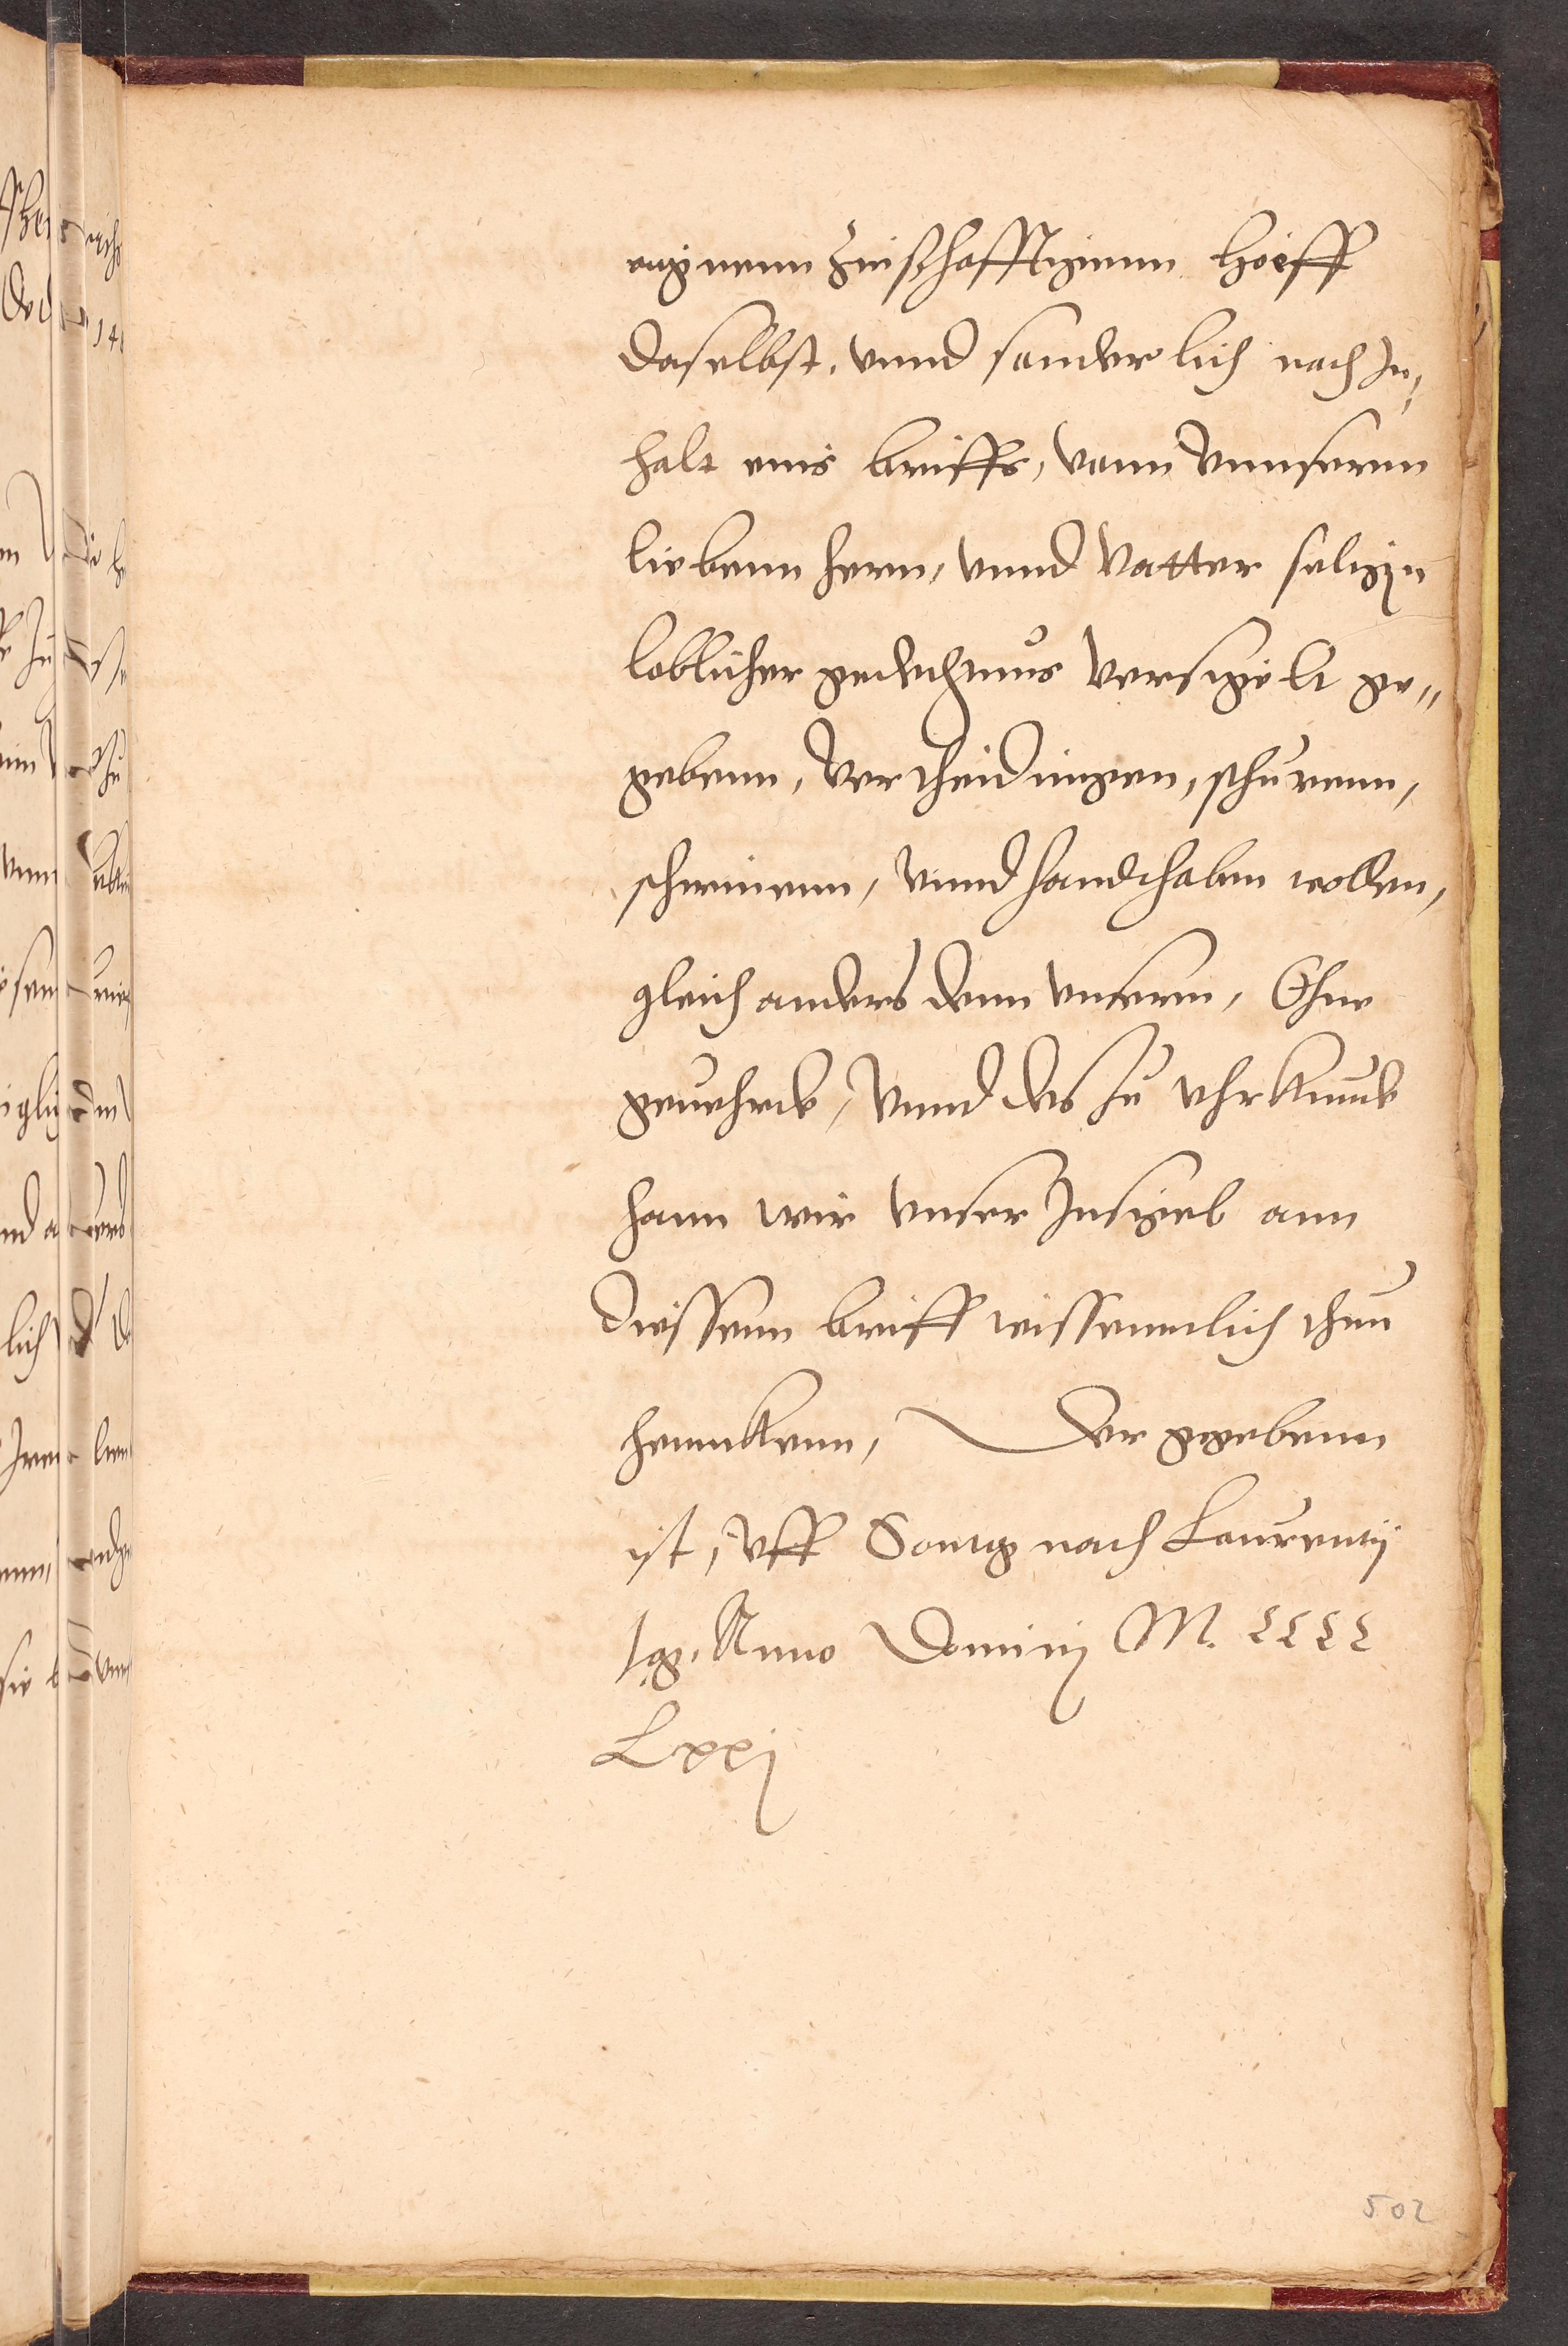 eigenenn Zinßhafftigenn Hoëff
daselbst, vnnd sonderlich nach In,
halt eins brieffs, vonn Vnnserem
liebenn hern, vnnd Vatter seligen
loblicher gedechtnus Versigelt ge„
gebenn, Vertheidingen, schurenn,
schirmenn, Vnnd handthaben wollen,
gleich anders denn vnserm, Ohne
geuehrde, Vnnd des zu Vhrkunde
hann wir vnser Insigel ann
diessenn brieff wissenntlich thun
henncken, Der gegebenn
ist, Vff Sontag nach Laurentij
Anno Dominj M. CCCC
Lxxj
502